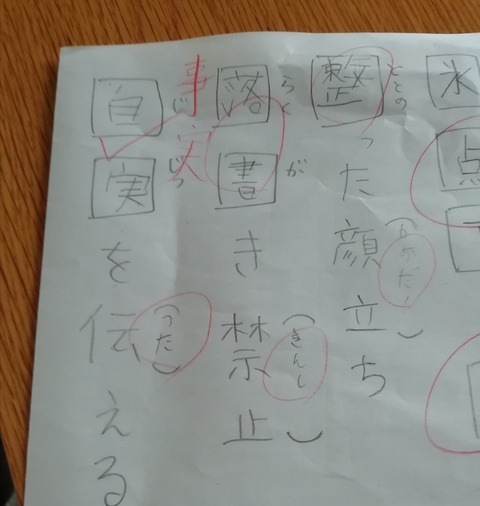 氷点下
ととの
整った顔立ち
らくが
落書き禁止
(きんし)
じじつ
自実を伝える
事実
(つた)